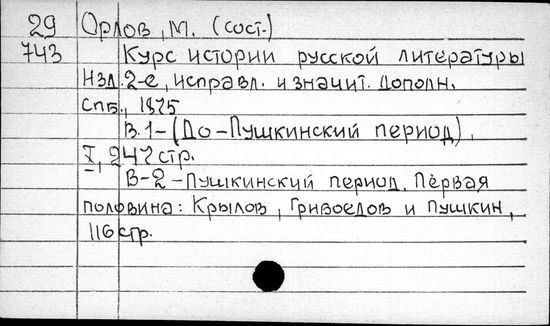 29 Орлов, М. (сост.)
743 Курс истории русской литературы
Изд. 2-е, исправл. и значит. дополн.
СПб., 1875
В. 1 - (До-Пушкинский период).
V, 247 стр.
В-2 - Пушкинский период. Первая
половина: Крылов, Грибоедов и Пушкин,
116 стр.